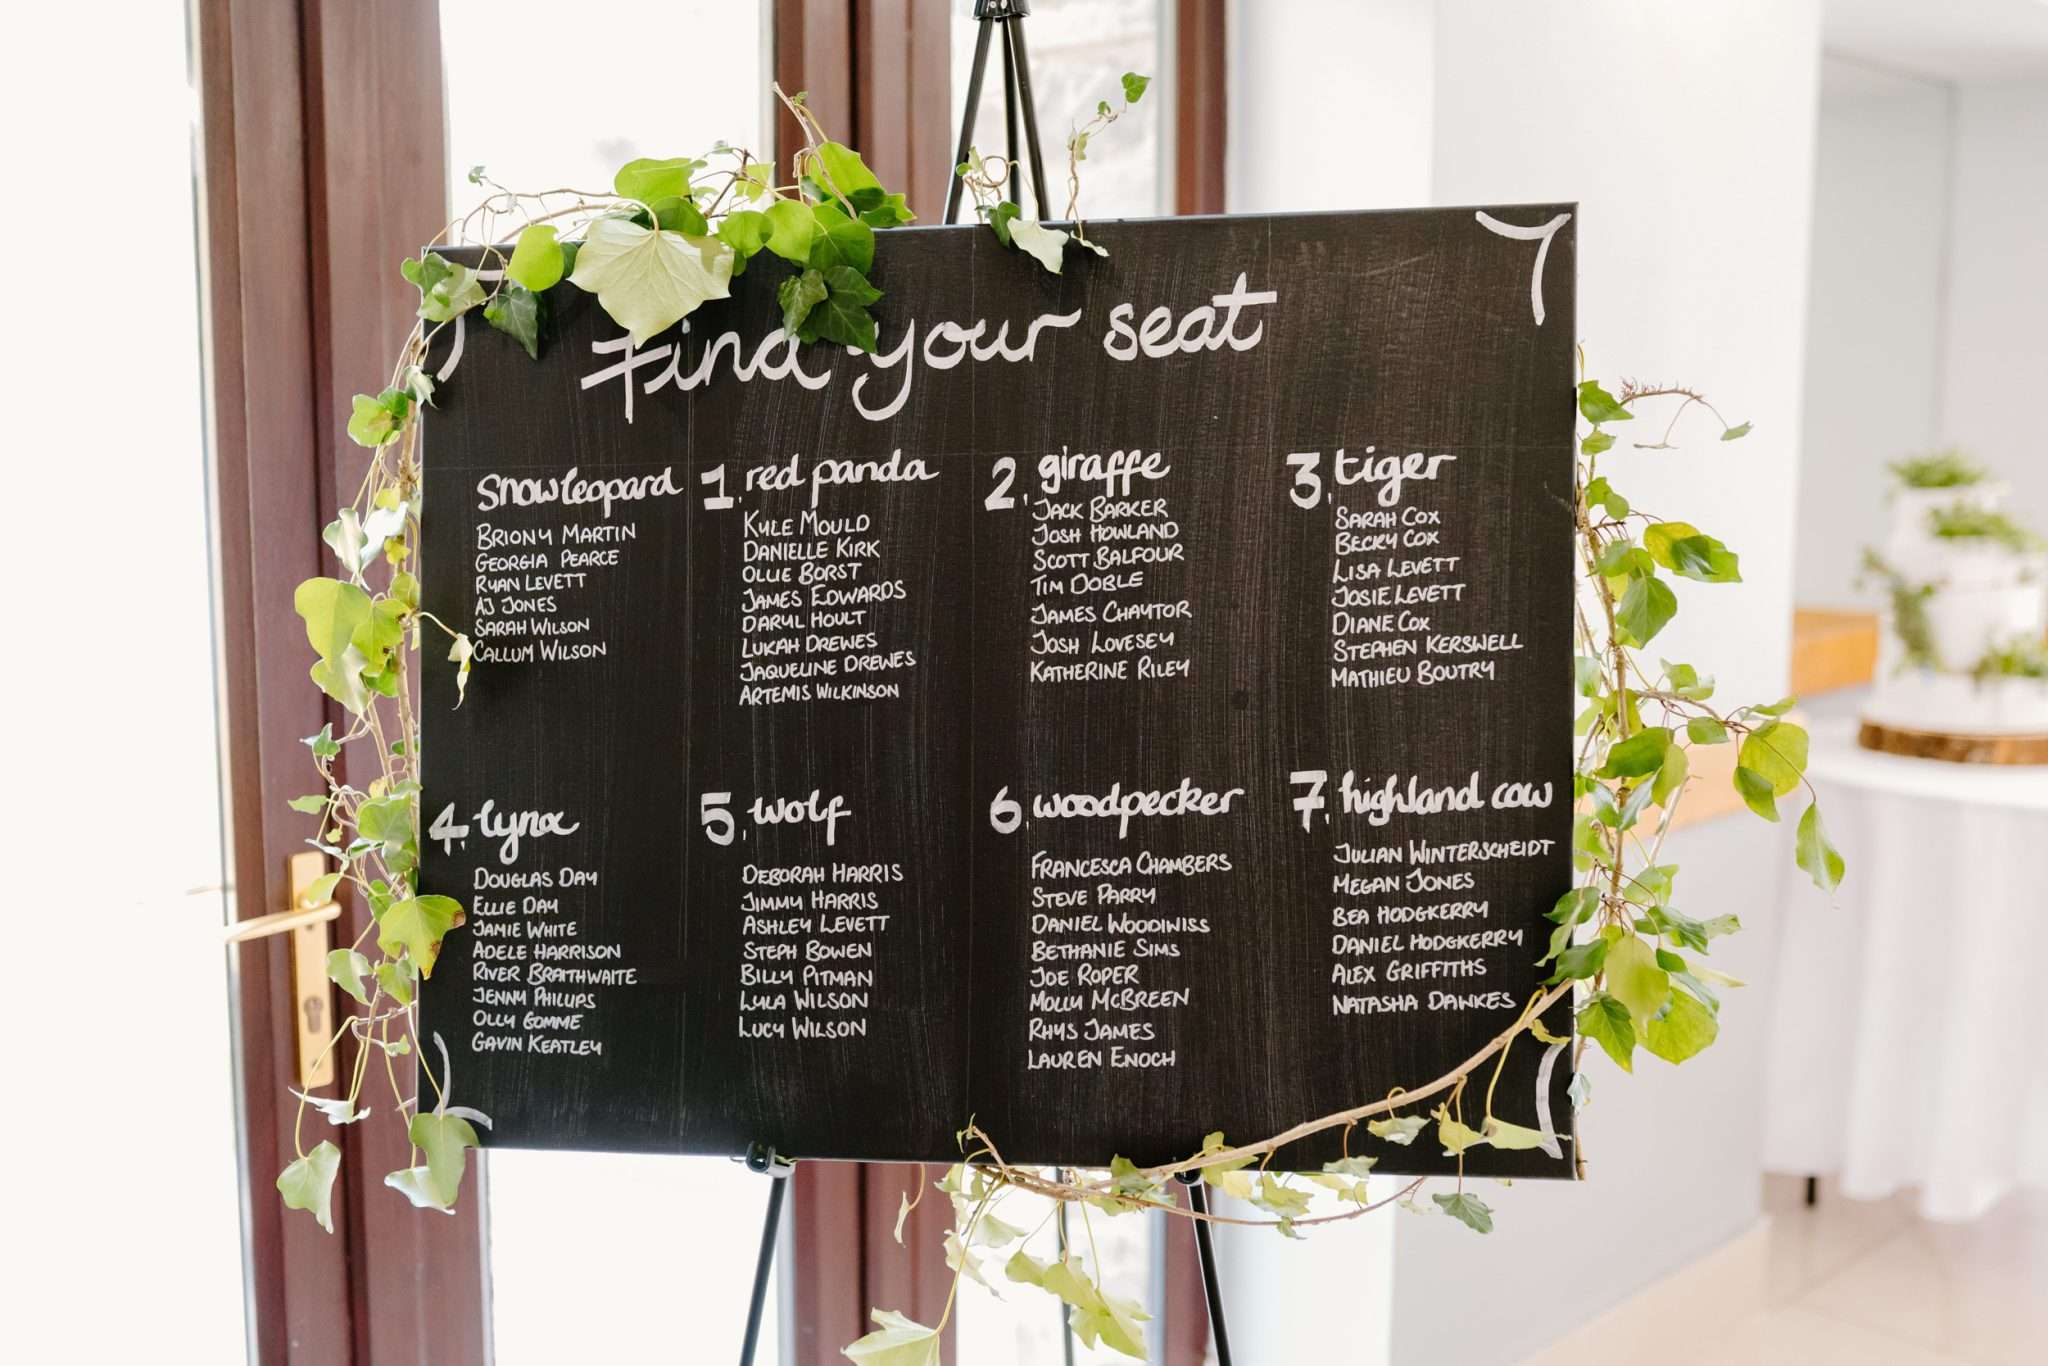 Find your seat
snow leopard
BRIONY MARTIN
GEORGIA PEARCE
RYAN LEVETT
AJ JONES
SARAH WILSON
CALLUM WILSON
1. red panda
KYLE MOULD
DANIELLE KIRK
OLLIE BORST
JAMES EDWARDS
DARYL HOULT
LUKAH DREWES
JAQUELINE DREWES
ARTEMIS WILKINSON
2. giraffe
JACK BARKER
JOSH HOWLAND
SCOTT BALFOUR
TIM DOBLE
JAMES CHAYTOR
JOSH LOVESEY
KATHERINE RILEY
3. tiger
SARAH COX
BECKY COX
LISA LEVETT
JOSIE LEVETT
DIANE COX
STEPHEN KERSWELL
MATHIEU BOUTRY
4. lynx
DOUGLAS DAY
ELLIE DAY
JAMIE WHITE
ADELE HARRISON
RIVER BRAITHWAITE
JENNY PHILLIPS
OLLY GOMME
GAVIN KEATLEY
5. wolf
DEBORAH HARRIS
JIMMY HARRIS
ASHLEY LEVETT
STEPH BOWEN
BILLY PITMAN
LYLA WILSON
LUCY WILSON
6. woodpecker
FRANCESCA CHAMBERS
STEVE PARRY
DANIEL WOODIWISS
BETHANIE SIMS
JOE ROPER
MOLLY MCBREEN
RHYS JAMES
LAUREN ENOCH
7. highland cow
JULIAN WINTERSCHEIDT
MEGAN JONES
BEA HODGKERRY
DANIEL HODGKERRY
ALEX GRIFFITHS
NATASHA DAWKES